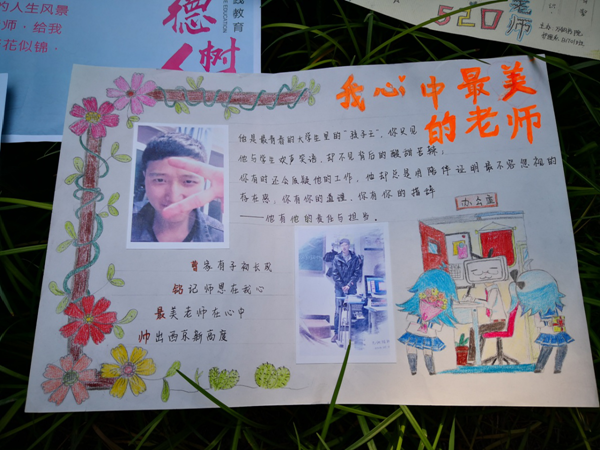 的人生风景
师·给我
花似锦·
践教育
德
树
人
520
老师
我心中最美
的老师
他是最有看的大学生里的"孩子王",你只见
他与学生欢声笑语,却不见背后的酸甜苦辣;
你有时还会质疑他的工作,他却总是用陪伴证明最不容忽视的
存在感,你有你的道理,他有他的
——他有他的责任与担当。
办公室
曹家有子初长成
铭记师恩在我心
最美老师在心中
帅出西京新高度